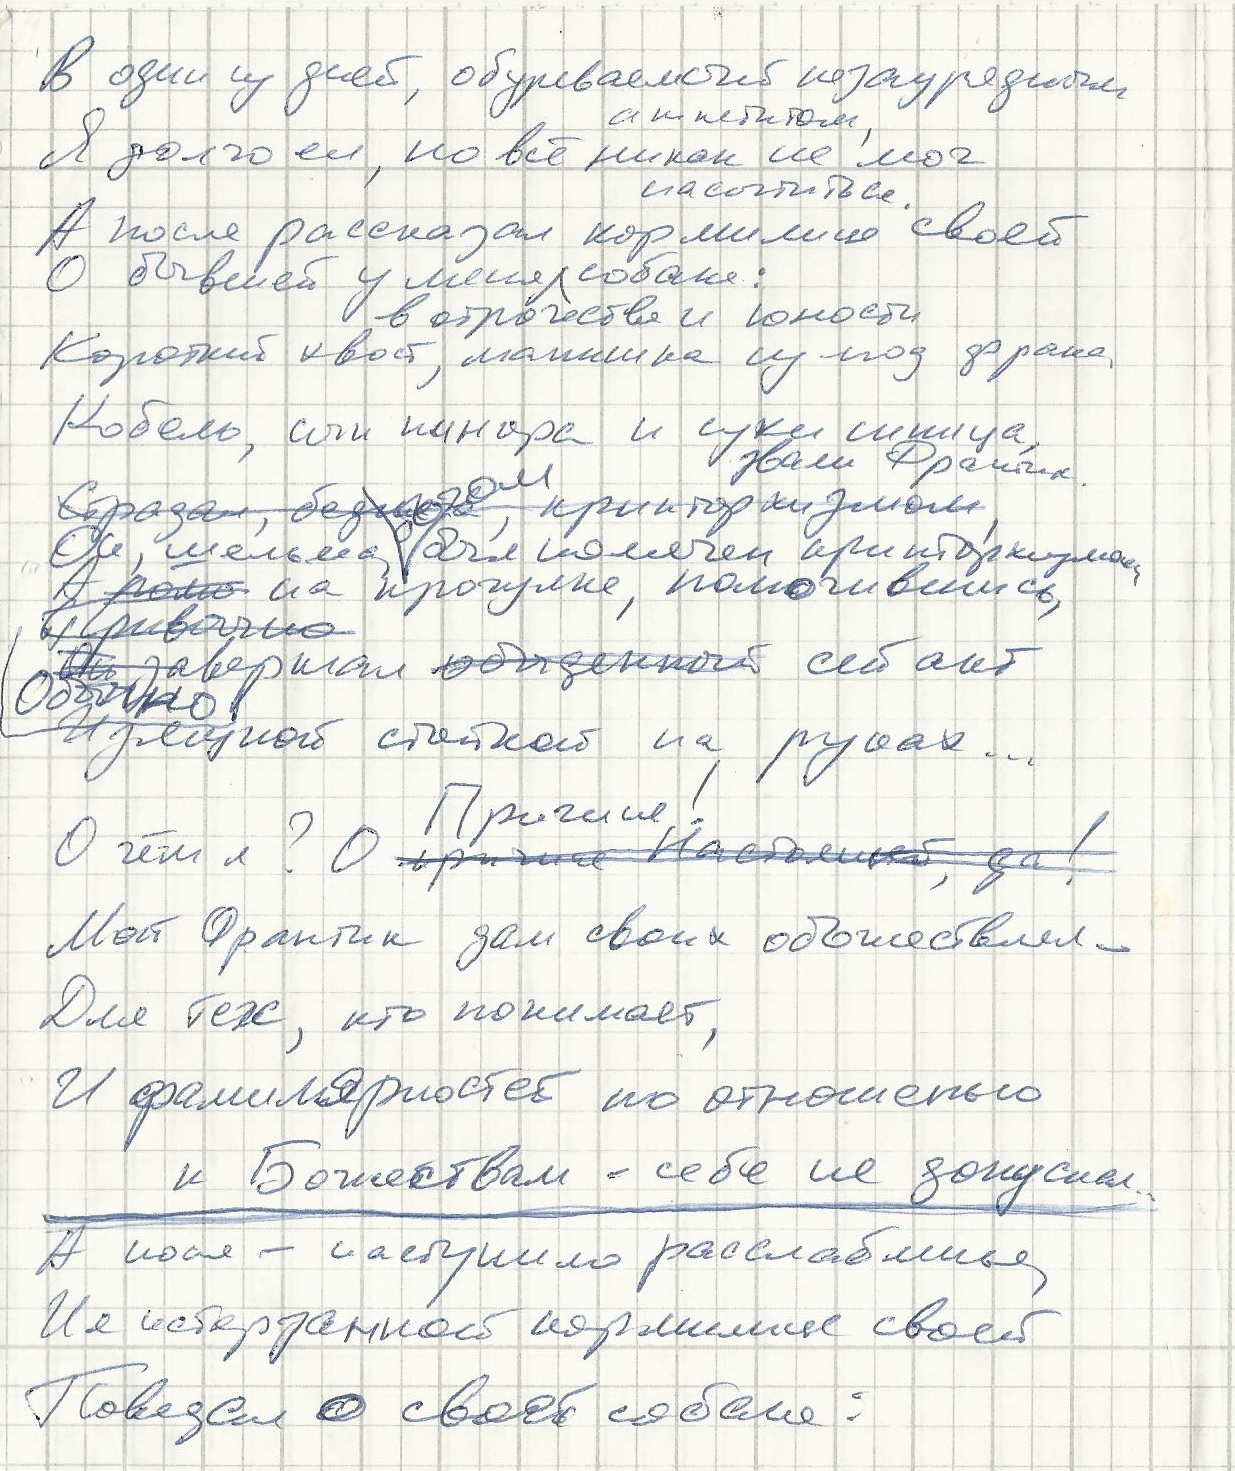 В один из дней, обуреваемый незаурядным
аппетитом,
Я долго ел, но всё никак не мог
насытиться.
А после рассказал кормилице своей
О бывшей у меня собаке:
в отрочестве и юности
Короткий хвост, манишка из под фрака,
Кобель, сын пинчера и суки шпица,
звали Франтик.
Страдал, бедняга, крипторхизмом,
Он, шельма, был помечен крипторхизмом,
А на прогулке, помочившись,
Привычно
Он завершал обыденный сей акт
Обычно
Изящной стойкой на руках...
Причине!
О чём я? О причине Настоящей, да!
Мой Франтик дам своих обожествлял –
Для тех, кто понимает,
И фамильярностей по отношенью
к Божествам - себе не допускал...
А после – наступило расслабленье,
И я истерзанной кормилице своей
Поведал о своей собаке: